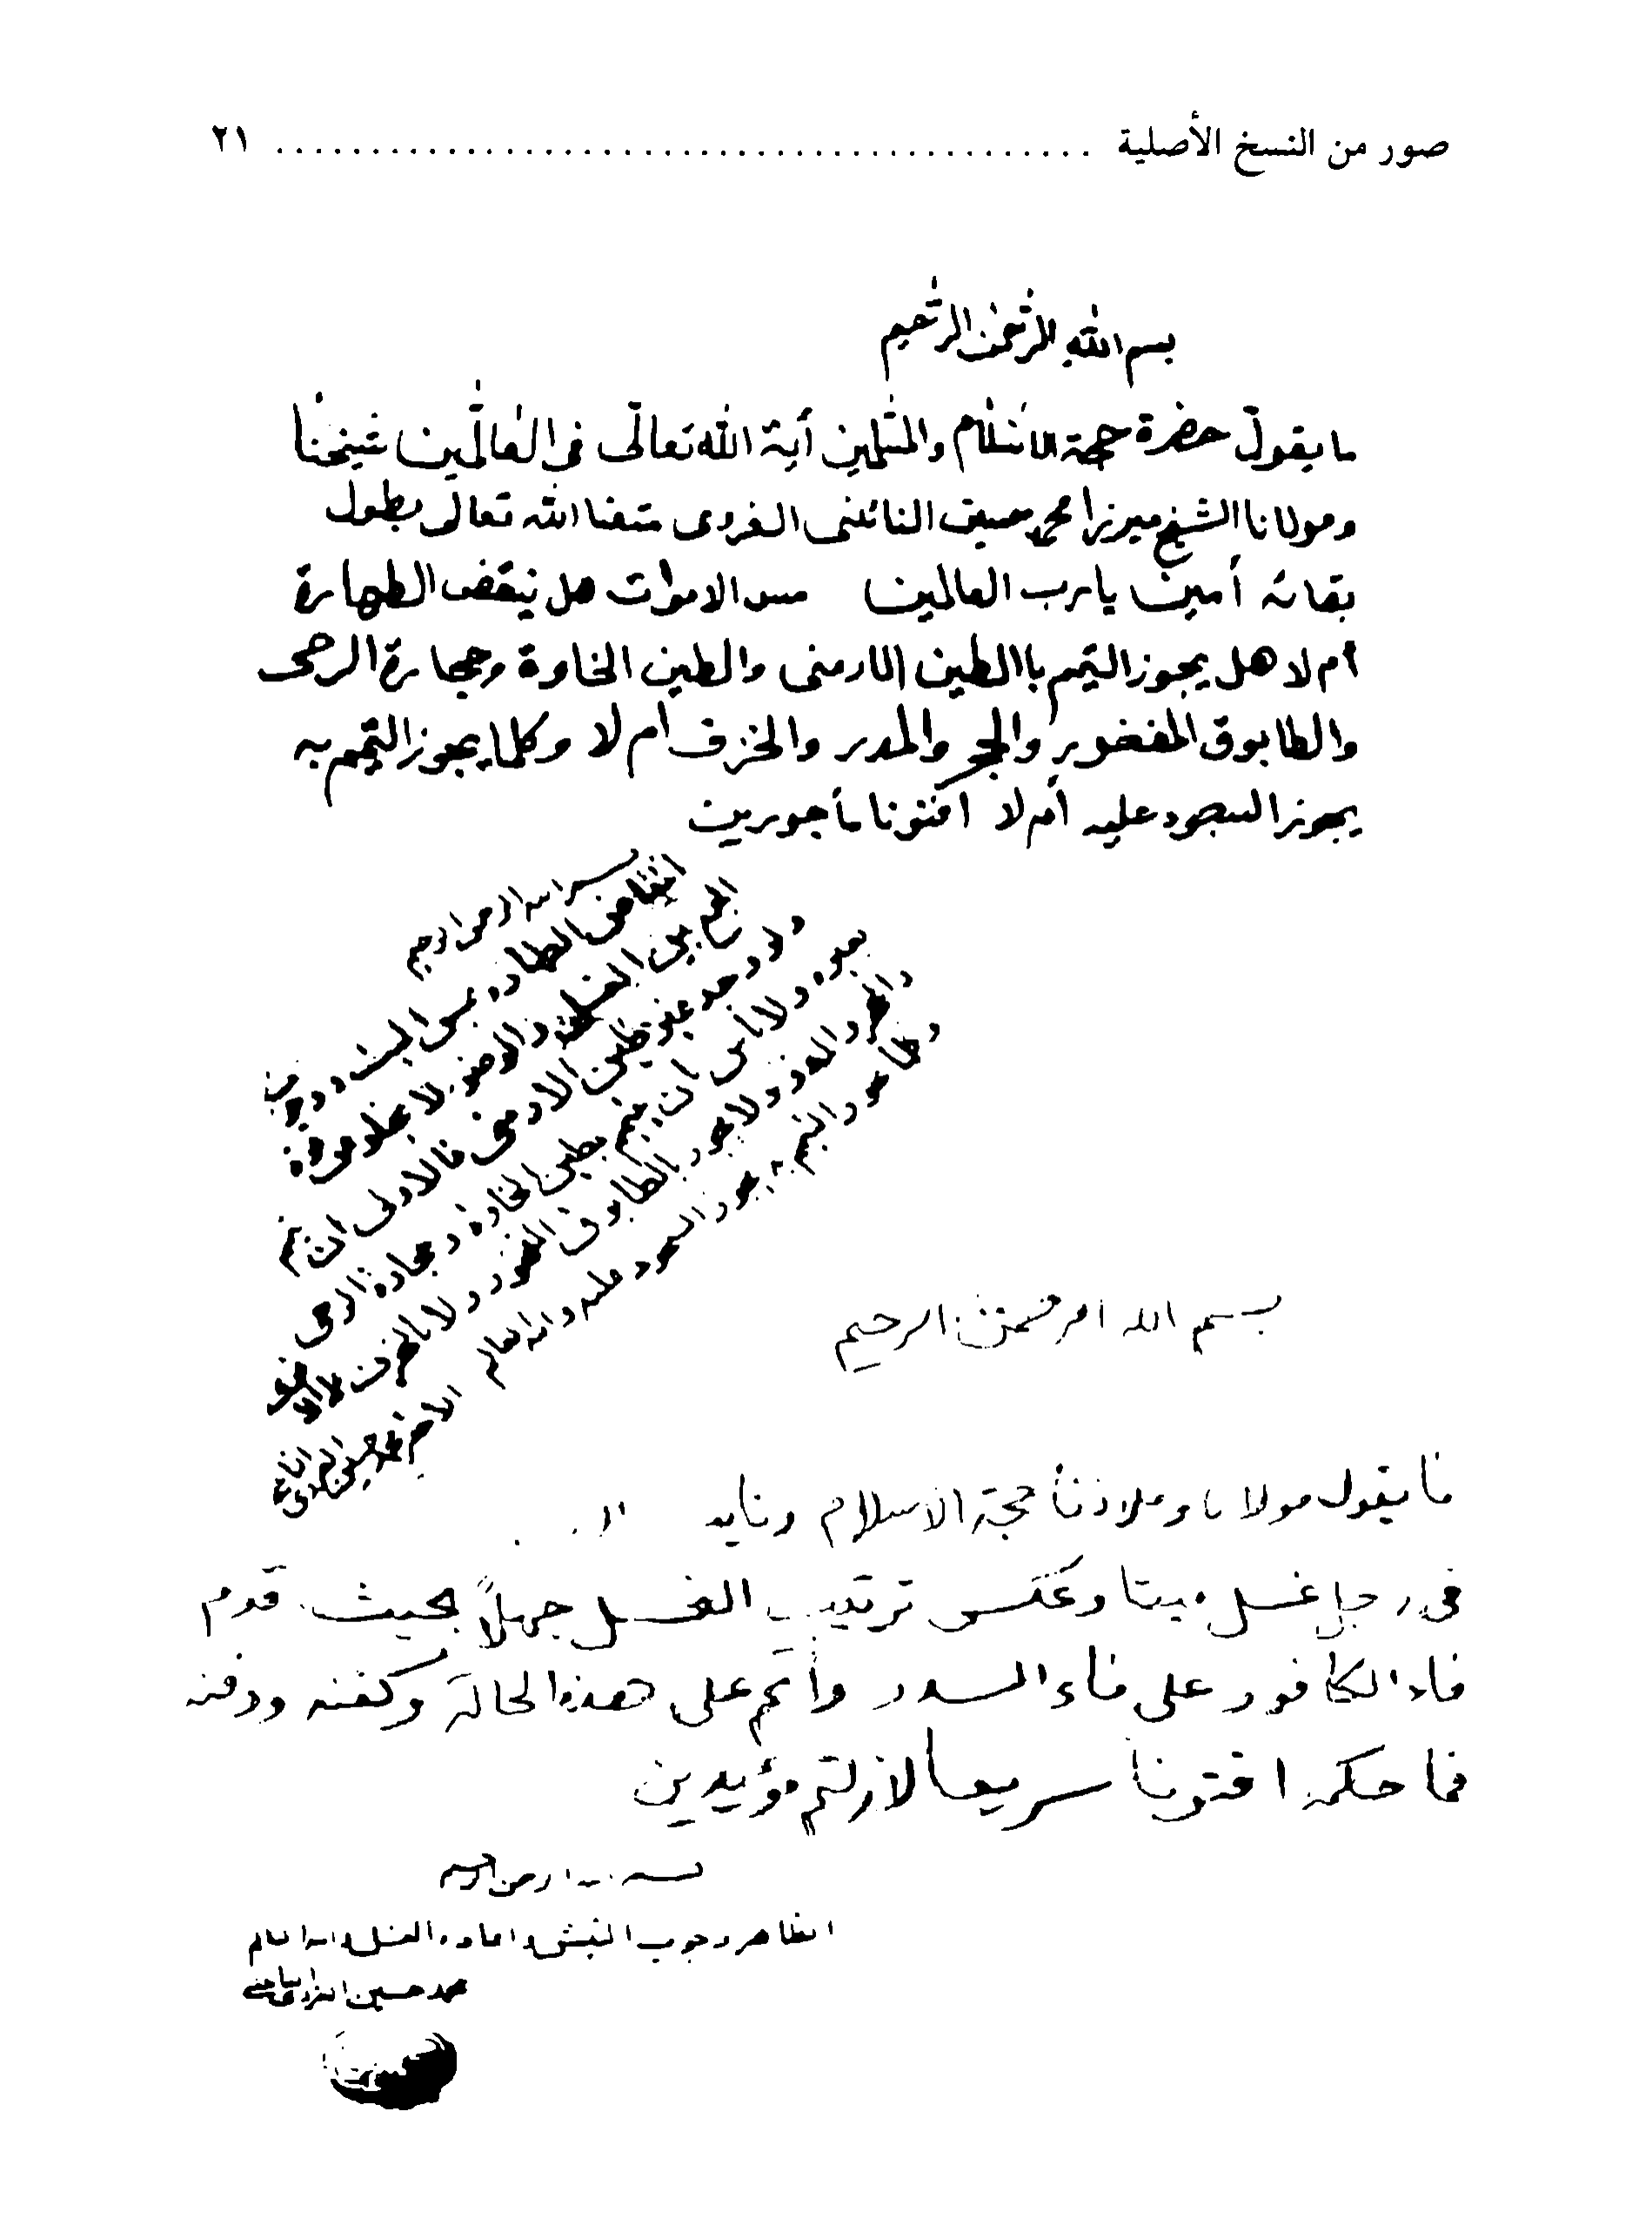 صور من النسخ الأصلية ........................................ ٢١
بسم الله الرحمن الرحيم
ما يقول حضرة حجة الاسلام والمسلمين آية الله تعالى في العالمين شيخنا
ومولانا الشيخ ميرزا محمد حسين النائيني الغروي متعنا الله تعالى بطول
بقائه أمين يا رب العالمين مس الاموات هل ينقض الطهارة
أم لا هل يجوز التيمم باالطين الارمني والطين الخاوة وحجارة الرحى
والطابوق المفخور والحجر والمدر والخزف ام لا وكلما يجوز التيمم به
يجوز السجود عليه أم لا افتونا مأجورين
بسم الله الرحمن الرحيم
انتقاض الطهارة بمس الميت ووجوب
الجمع بين الغسل والوضوء لا يخلو من قوة
ولو وجد غير طين الارمني فالاولى ان يتيمم
بغيره ولا بأس ان يتيمم بطين الخاوة وحجارة الرحى
والحجر والمدر ولا يجوز بالطابوق المفخور ولا بالخزف
وكلما يجوز التيمم به يجوز السجود عليه والله العالم
الاحقر محمد حسين الغروي النائيني
بسم الله الرحمن الرحيم
ما يقول مولانا وملاذنا حجة الاسلام
في رجل غسل ميتا وعكس ترتيب الغسل جهلاً بحيث قدم
ماء الكافور على ماء السدر وأتم على هذه الحالة وكفنه ودفنه
فما حكمه افتونا سريعا لازلتم مؤيدين
بسم الله الرحمن الرحيم
الظاهر وجوب النبش واعادة الغسل والله العالم
محمد حسين الغروي النائيني